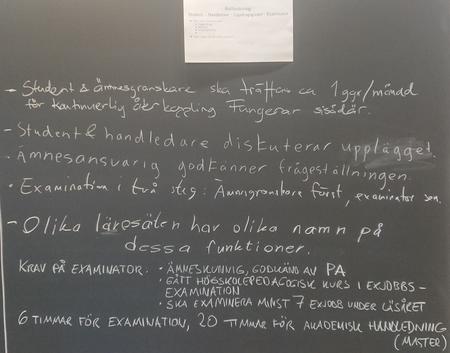 - Student & ämnesgranskare ska träffas ca 1 ggr/månad
för kontinuerlig återkoppling Fungerar sisådär.
- Student & handledare diskuterar upplägget.
• Ämnesansvarig godkänner frågeställningen.
• Examination i två steg: Ämnesgranskare först, examinator sen.
- Olika lärosäten har olika namn på
dessa funktioner.
KRAV PÅ EXAMINATOR: • ÄMNESKUNNIG, GODKÄND AV PA
• GÅTT HÖGSKOLEPEDAGOGISK KURS I EXJOBBS-
EXAMINATION
• SKA EXAMINERA MINST 7 EXJOBB UNDER LÄSÅRET
6 TIMMAR FÖR EXAMINATION, 20 TIMMAR FÖR AKADEMISK HANDLEDNING
(MASTER)